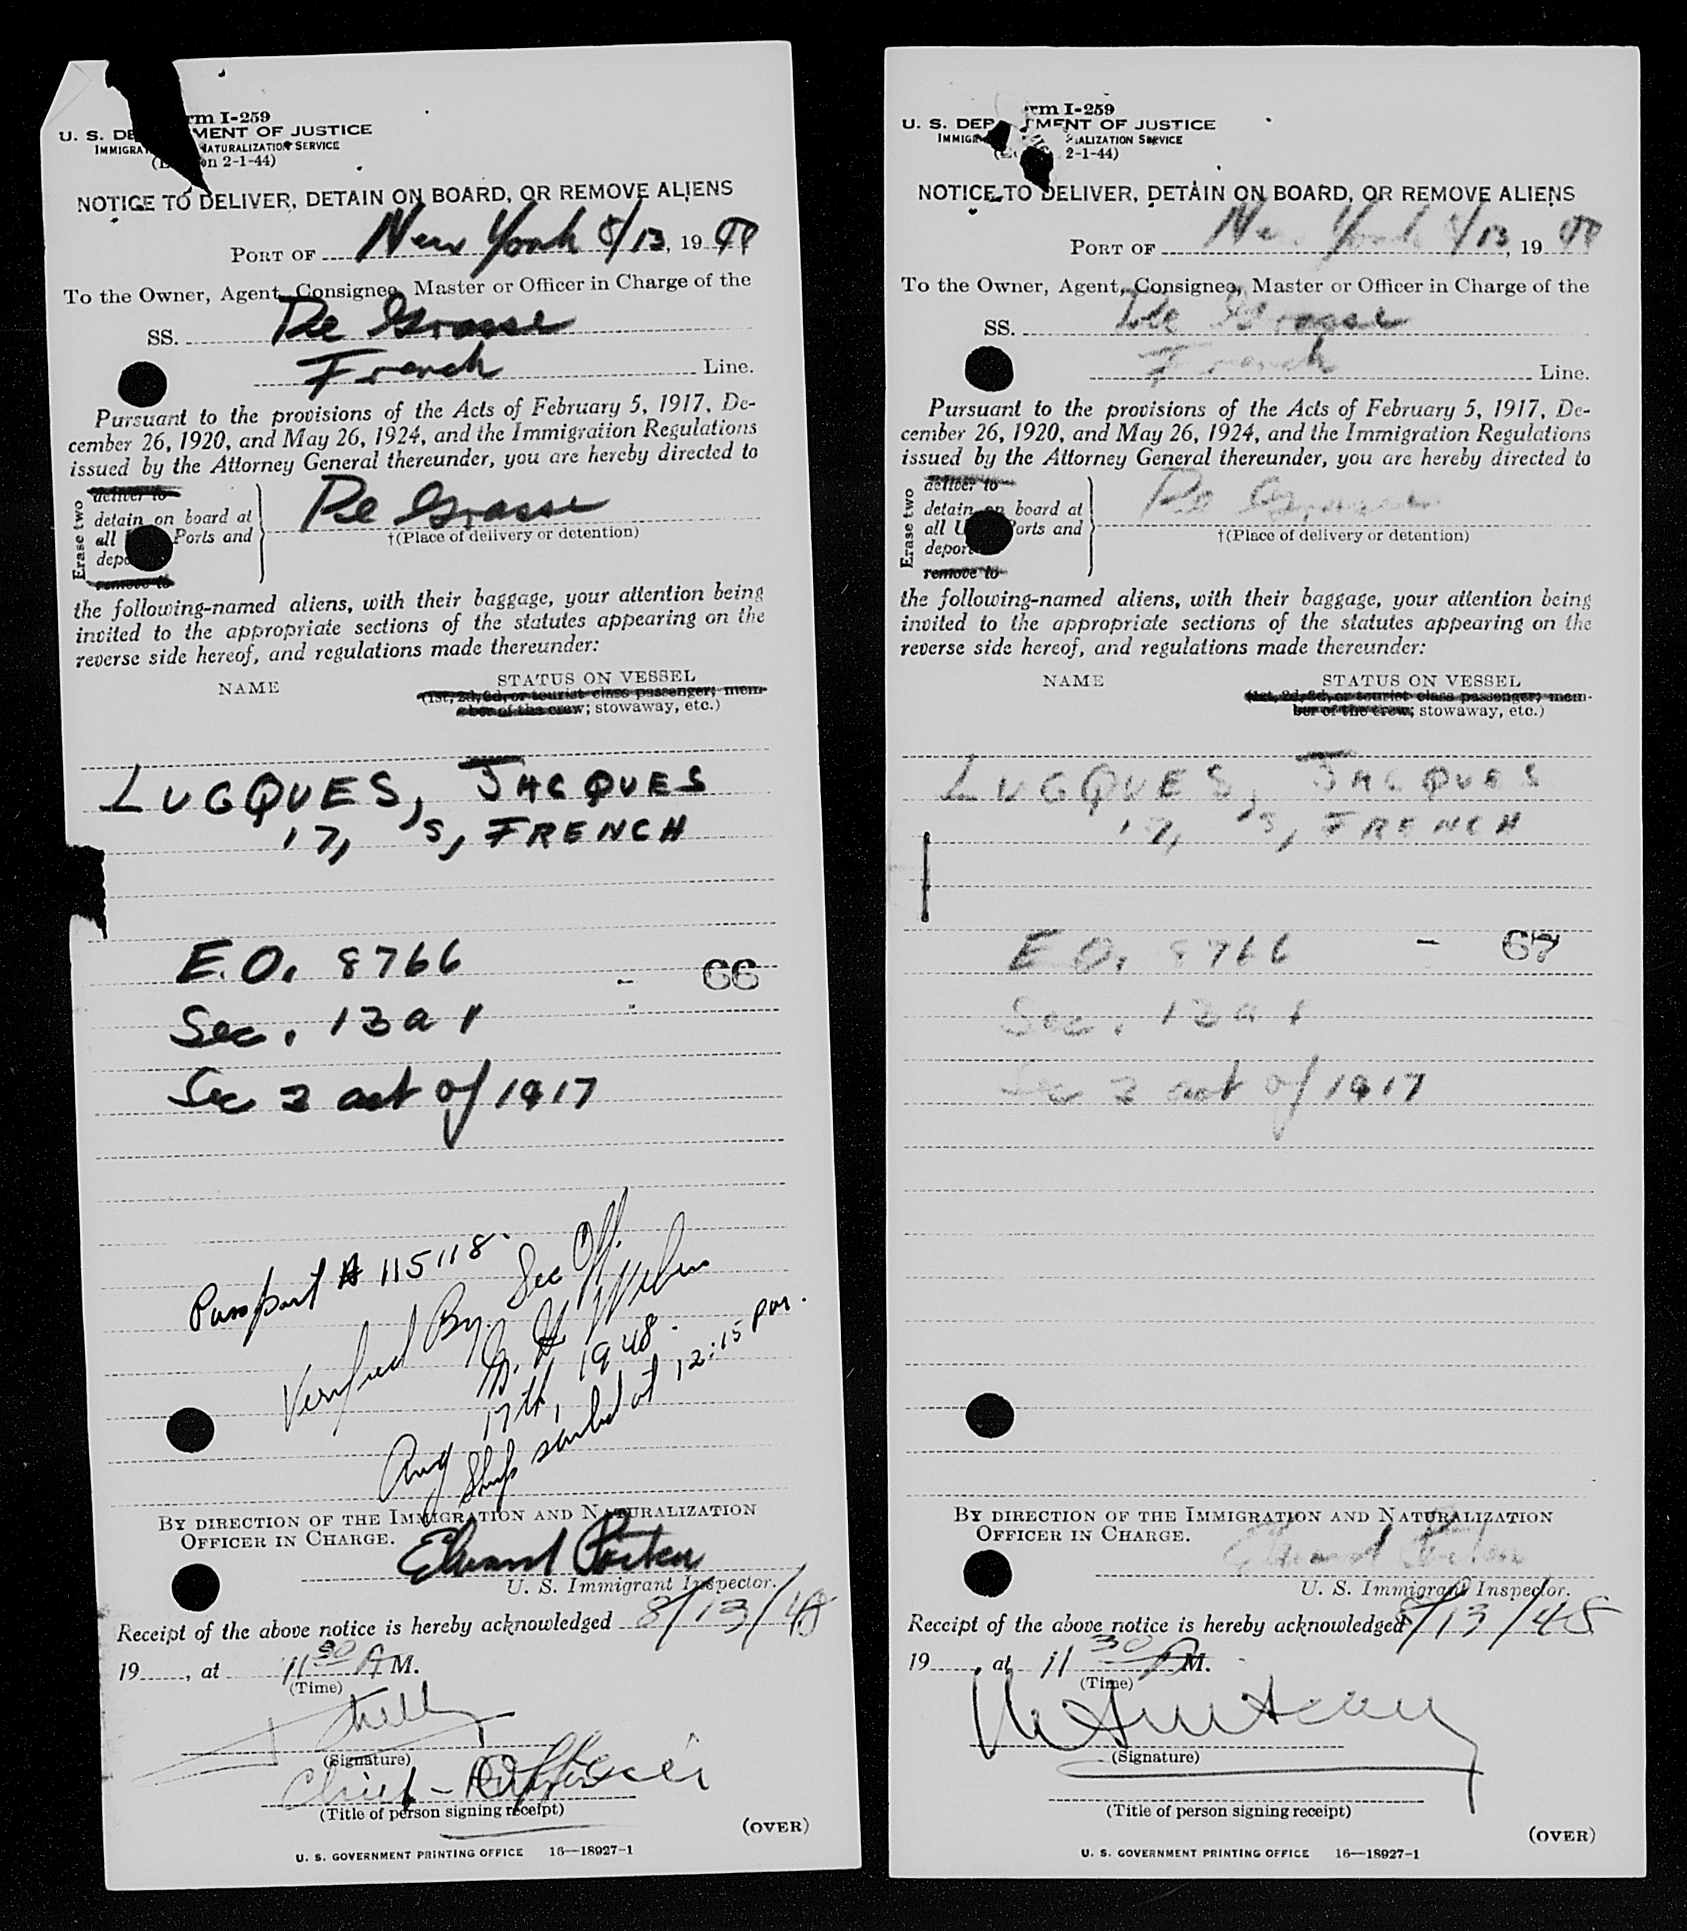 rm I-259
U. S. DE MENT OF JUSTICE
IMMIGRA NATURALIZATION SERVICE
n 2-1-44)
NOTICE TO DELIVER, DETAIN ON BOARD, OR REMOVE ALIENS
PORT OF New York 8/13, 1948
To the Owner, Agent, Consignee, Master or Officer in Charge of the
SS. De Grasse
French Line.
Pursuant to the provisions of the Acts of February 5, 1917, De-
cember 26, 1920, and May 26, 1924, and the Immigration Regulations
issued by the Attorney General thereunder, you are hereby directed to
Erase two
deliver to
detain on board at
all Ports and
depo
remove to
De Grasse
†(Place of delivery or detention)
the following-named aliens, with their baggage, your attention being
invited to the appropriate sections of the statutes appearing on the
reverse side hereof, and regulations made thereunder:
NAME STATUS ON VESSEL
(1st, 2d, 3d, or tourist class passenger; mem-
ber of the crew; stowaway, etc.)
LUGQUES, JACQUES
17, S, FRENCH
E.O. 8766 - 66
Sec. 13 a 1
Sec 3 act of 1917
Passport # 115118.
Verified By Sec Off.
17th, 1948.
Aug
Ship sailed at 12:15 pm.
BY DIRECTION OF THE IMMIGRATION AND NATURALIZATION
OFFICER IN CHARGE.
Edward
U. S. Immigrant Inspector.
Receipt of the above notice is hereby acknowledged 8/13/48
19 , at 11 30 A M.
(Time)
(Signature)
Chief - Officer
(Title of person signing receipt)
(OVER)
U. S. GOVERNMENT PRINTING OFFICE 16—18927-1
rm I-259
U. S. DEP TMENT OF JUSTICE
IMMIG ALIZATION SERVICE
2-1-44)
NOTICE TO DELIVER, DETAIN ON BOARD, OR REMOVE ALIENS
PORT OF New York 8/13, 1948
To the Owner, Agent, Consignee, Master or Officer in Charge of the
SS. De Grasse
French Line.
Pursuant to the provisions of the Acts of February 5, 1917, De-
cember 26, 1920, and May 26, 1924, and the Immigration Regulations
issued by the Attorney General thereunder, you are hereby directed to
Erase two
deliver to
detain on board at
all U Ports and
depor
remove to
De Grasse
†(Place of delivery or detention)
the following-named aliens, with their baggage, your attention being
invited to the appropriate sections of the statutes appearing on the
reverse side hereof, and regulations made thereunder:
NAME STATUS ON VESSEL
(1st, 2d, 3d, or tourist class passenger; mem-
ber of the crew; stowaway, etc.)
LUGQUES, JACQUES
17, S, FRENCH
E.O. 8766 - 67
Sec. 13 a 1
Sec 3 act of 1917
BY DIRECTION OF THE IMMIGRATION AND NATURALIZATION
OFFICER IN CHARGE.
Edward
U. S. Immigrant Inspector.
Receipt of the above notice is hereby acknowledged 8/13/48
19 , at 11 30 A M.
(Time)
(Signature)
(Title of person signing receipt)
(OVER)
U. S. GOVERNMENT PRINTING OFFICE 16—18927-1